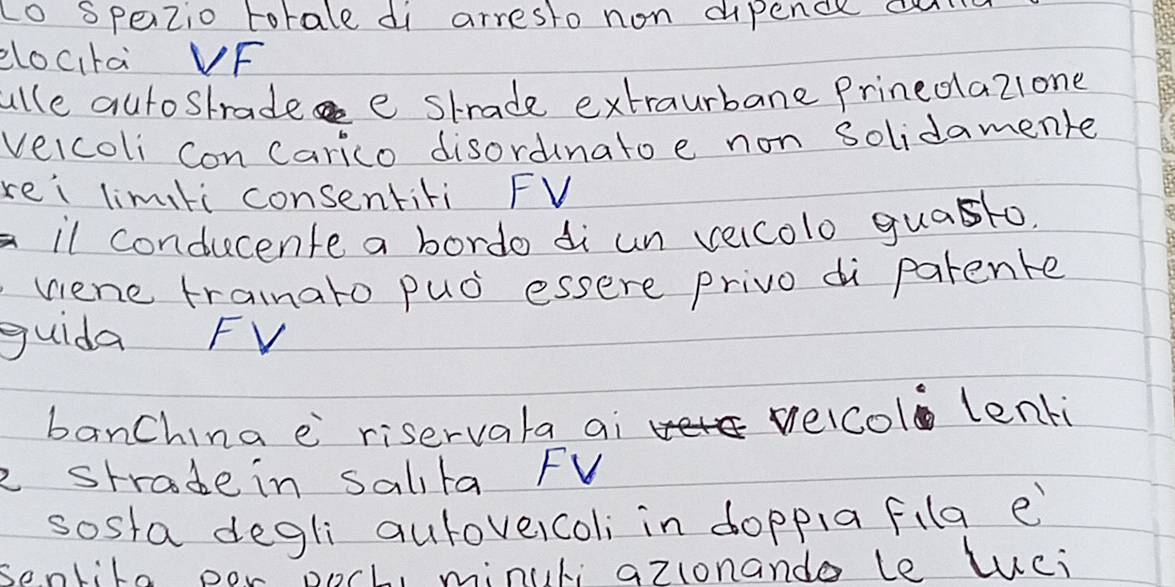 Lo spazio totale di arresto non dipende
elocità VF
ulle autostrade e strade extraurbane Prineolazione
veicoli con carico disordinato e non solidamente
rei limiti consentiti FV
il conducente a bordo di un veicolo guasto.
viene trainato può essere privo di patente
guida FV
banchina è riservata ai veicoli lenti
e strade in salita FV
sosta degli autoveicoli in doppia fila è
sentita per pochi minuti azionando le luci